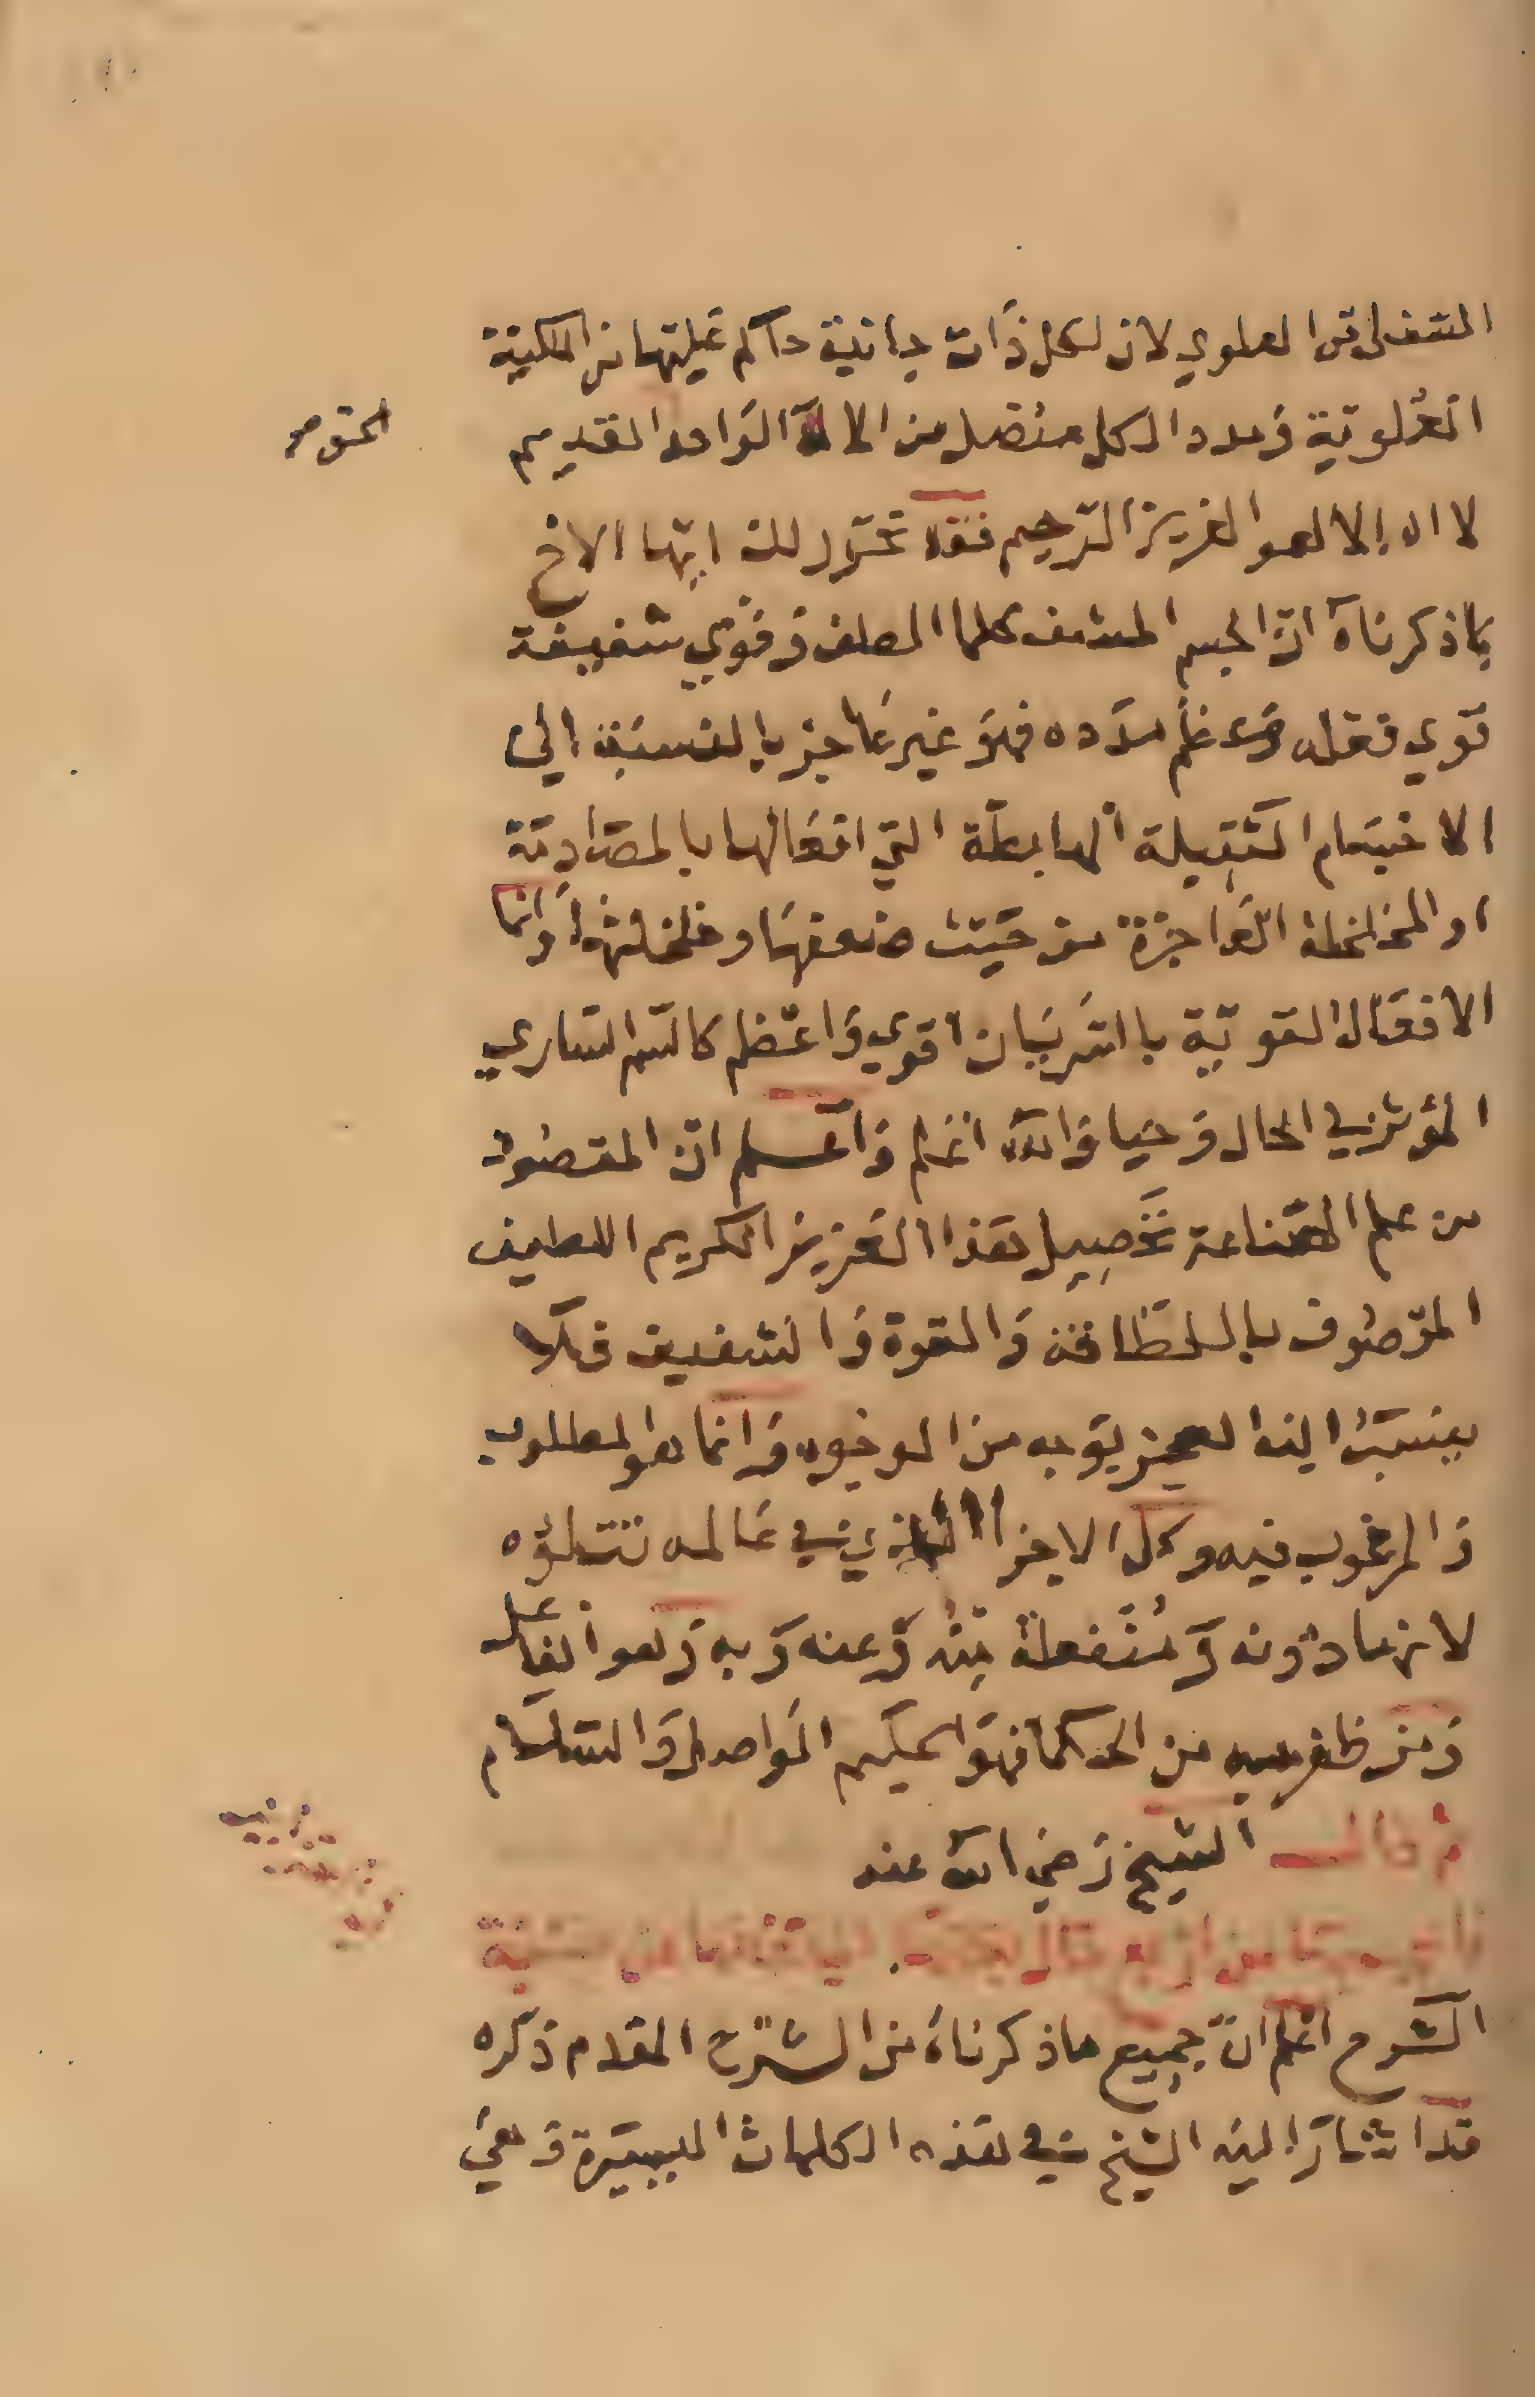 السفلي من العلوي لان لكل ذات جانية حاكم عليها من الملكية
العلوية ومدد الكل متصل من الاله الواحد القديم
لا اله الا هو العزيز الرحيم فقد تحرر لك ايها الاخ
بما ذكرناه ان الجسم المشف كلما الطف وقوي شفيفه
قوي فعله وعظم مدده فهو غير عاجز بالنسبة الي
الاجسام الثقيلة الهابطة التي افعالها بالمصادمة
او المخلخلة العاجزة من حيث ضعفها وخلخلتها وانما
الافعال القوية بالسريان اقوي واعظم كالسم الساري
المؤثر في الحال وحيا والله اعلم واعلم ان المقصود
من علم الصناعة تحصيل هذا العزيز الكريم اللطيف
الموصوف باللطافة والقوة والشفيف فلا
ينسب اليه العجز بوجه من الوجوه وانما هو المطلوب
والمرغوب فيه وكل الاجزا التي في عالمه تتلوه
لانها دونه ومنفعلة منه وعنه وبه وهو الفاعل
ومن ظفر به من الحكما فهو الحكيم الواصل والسلام
ثم قال الشيخ رضي الله عنه
الشرح اعلم ان جميع ما ذكرناه من الشرح المقدم ذكره
قد اشار اليه الشيخ في هذه الكلمات اليسيرة وهي